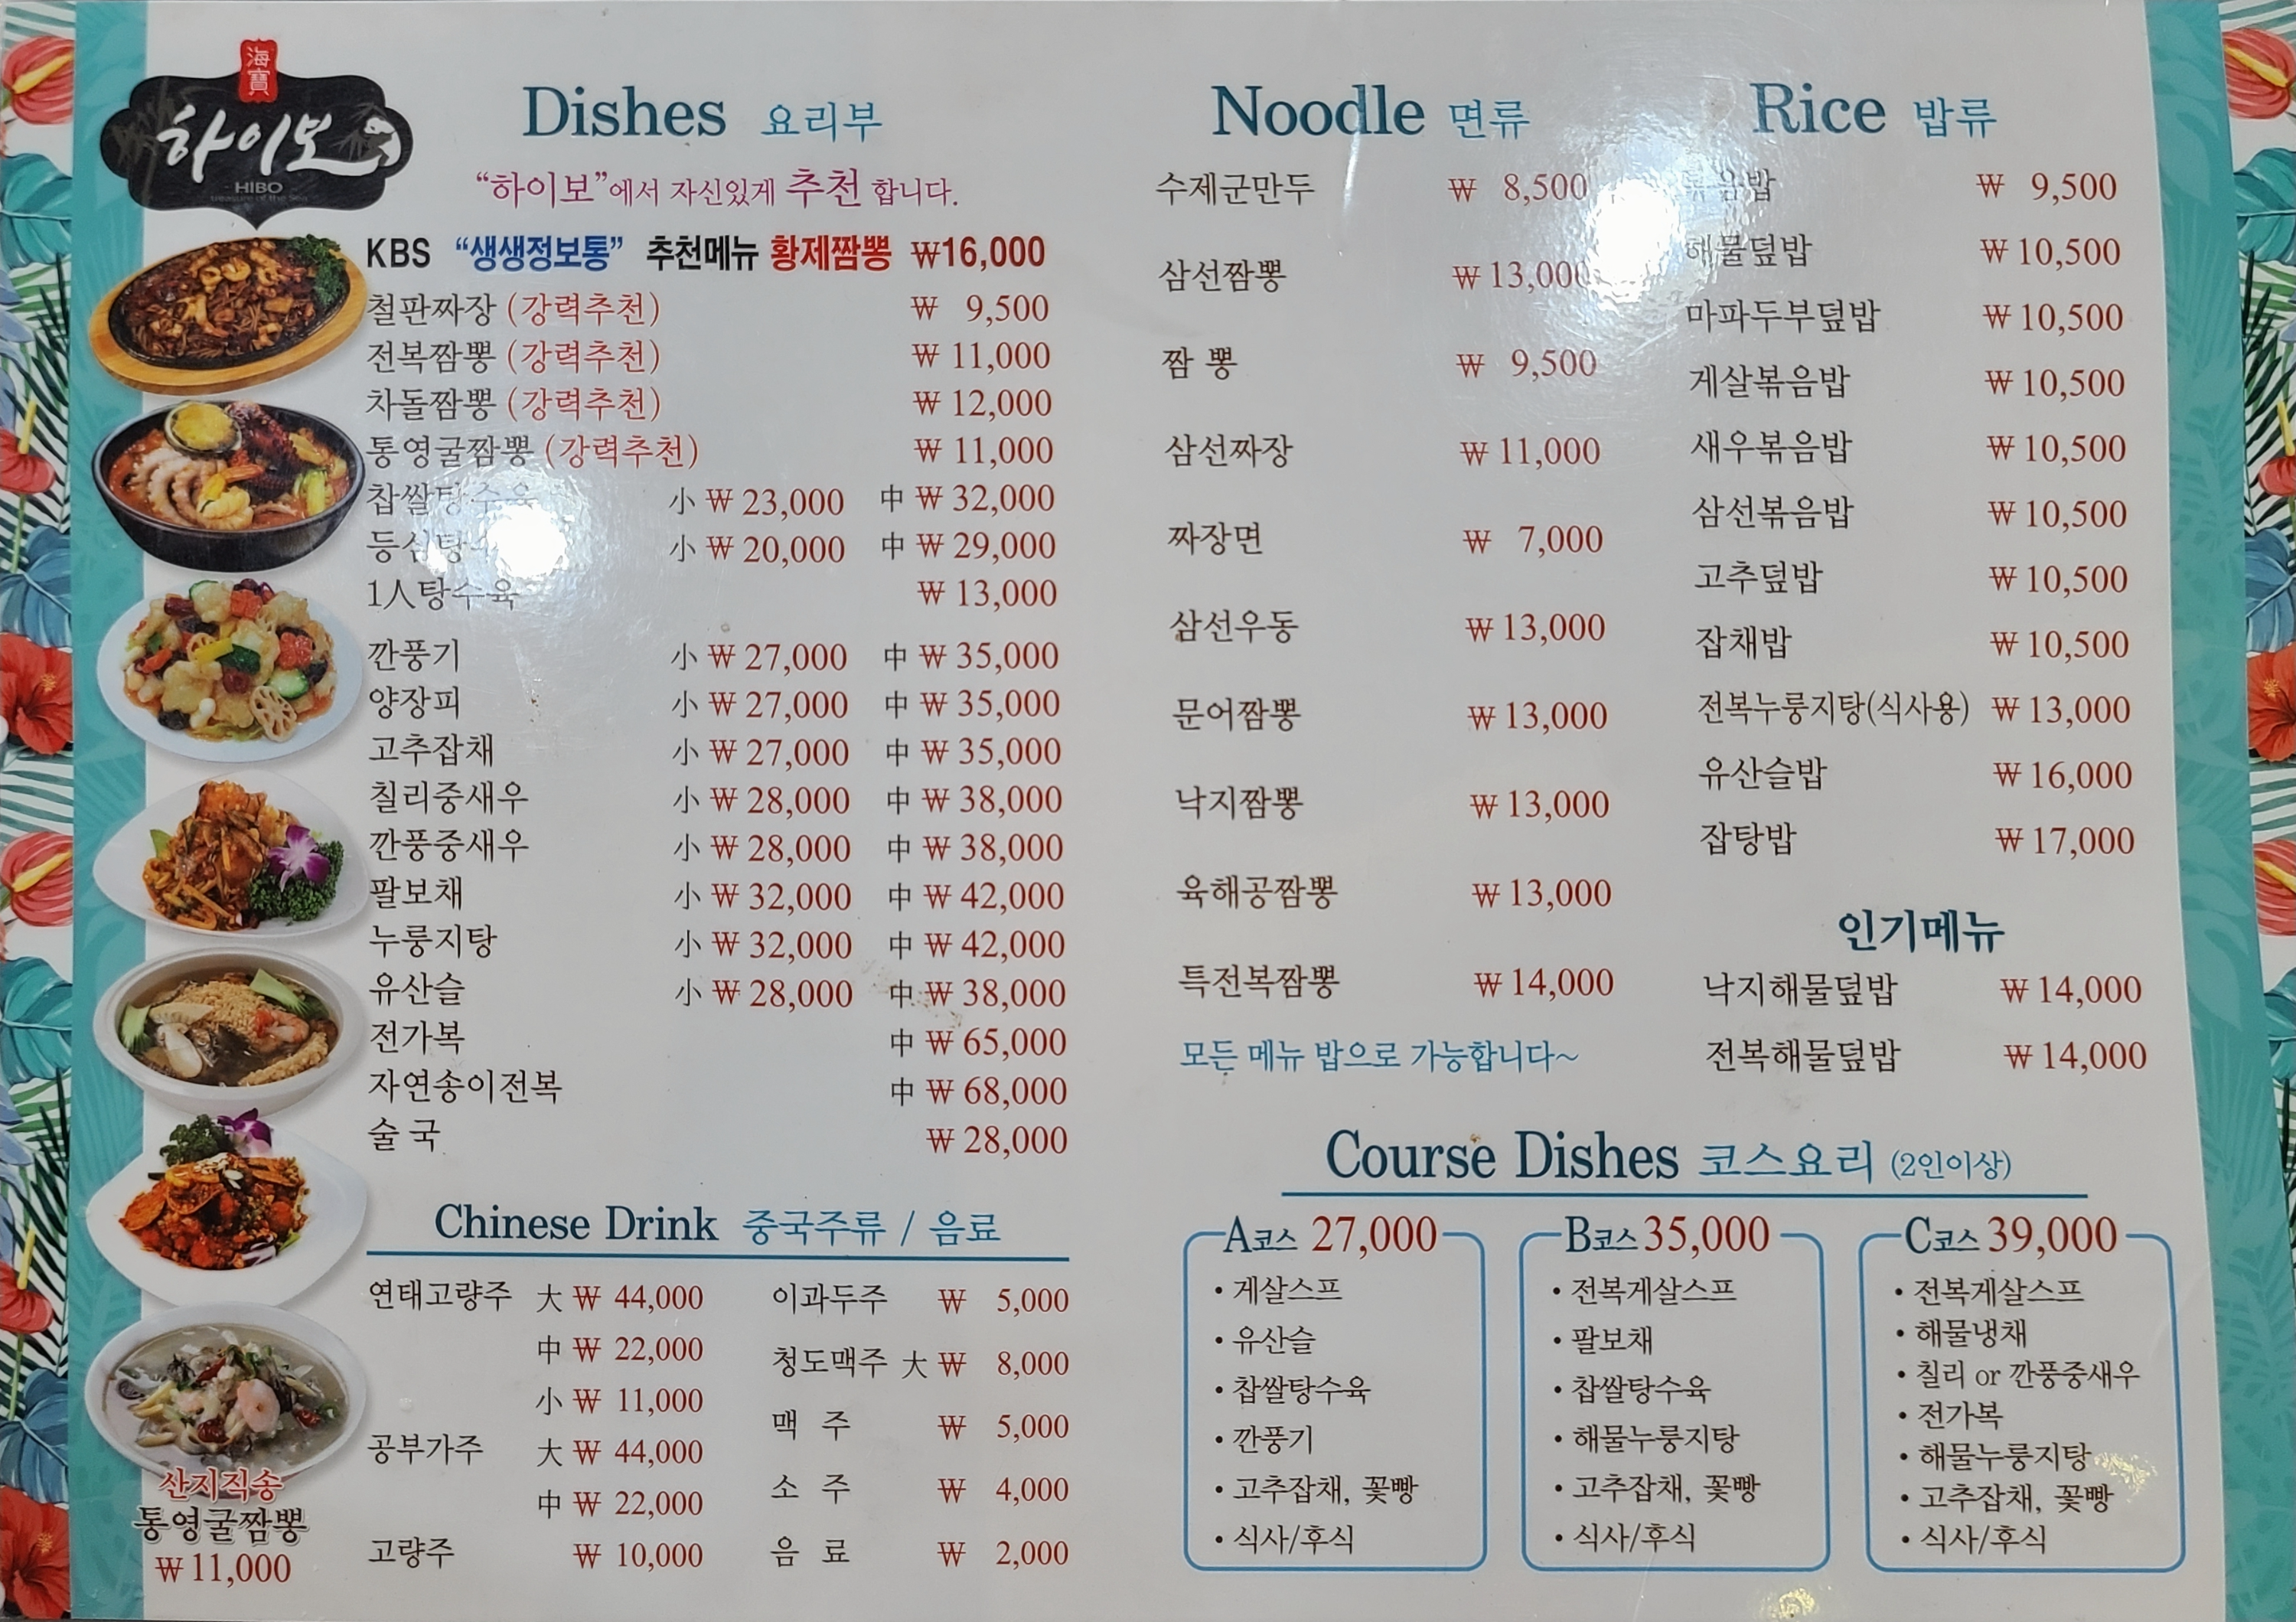 海寶
하이보
HIBO
treasure of the Sea
Dishes 요리부
“하이보”에서 자신있게 추천 합니다.
KBS “생생정보통” 추천메뉴 황제짬뽕 ₩16,000
철판짜장 (강력추천) ₩ 9,500
전복짬뽕 (강력추천) ₩ 11,000
차돌짬뽕 (강력추천) ₩ 12,000
통영굴짬뽕 (강력추천) ₩ 11,000
찹쌀탕수육 小 ₩ 23,000 中 ₩ 32,000
등심탕수 小 ₩ 20,000 中 ₩ 29,000
1人탕수육 ₩ 13,000
깐풍기 小 ₩ 27,000 中 ₩ 35,000
양장피 小 ₩ 27,000 中 ₩ 35,000
고추잡채 小 ₩ 27,000 中 ₩ 35,000
칠리중새우 小 ₩ 28,000 中 ₩ 38,000
깐풍중새우 小 ₩ 28,000 中 ₩ 38,000
팔보채 小 ₩ 32,000 中 ₩ 42,000
누룽지탕 小 ₩ 32,000 中 ₩ 42,000
유산슬 小 ₩ 28,000 中 ₩ 38,000
전가복 中 ₩ 65,000
자연송이전복 中 ₩ 68,000
술 국 ₩ 28,000
Chinese Drink 중국주류 / 음료
연태고량주 大 ₩ 44,000
中 ₩ 22,000
小 ₩ 11,000
공부가주 大 ₩ 44,000
中 ₩ 22,000
고량주 ₩ 10,000
이과두주 ₩ 5,000
청도맥주 大 ₩ 8,000
맥 주 ₩ 5,000
소 주 ₩ 4,000
음 료 ₩ 2,000
산지직송
통영굴짬뽕
₩ 11,000
Noodle 면류
수제군만두 ₩ 8,500
삼선짬뽕 ₩ 13,000
짬 뽕 ₩ 9,500
삼선짜장 ₩ 11,000
짜장면 ₩ 7,000
삼선우동 ₩ 13,000
문어짬뽕 ₩ 13,000
낙지짬뽕 ₩ 13,000
육해공짬뽕 ₩ 13,000
특전복짬뽕 ₩ 14,000
모든 메뉴 밥으로 가능합니다~
Rice 밥류
볶음밥 ₩ 9,500
해물덮밥 ₩ 10,500
마파두부덮밥 ₩ 10,500
게살볶음밥 ₩ 10,500
새우볶음밥 ₩ 10,500
삼선볶음밥 ₩ 10,500
고추덮밥 ₩ 10,500
잡채밥 ₩ 10,500
전복누룽지탕(식사용) ₩ 13,000
유산슬밥 ₩ 16,000
잡탕밥 ₩ 17,000
인기메뉴
낙지해물덮밥 ₩ 14,000
전복해물덮밥 ₩ 14,000
Course Dishes 코스요리 (2인이상)
A코스 27,000
• 게살스프
• 유산슬
• 찹쌀탕수육
• 깐풍기
• 고추잡채, 꽃빵
• 식사/후식
B코스 35,000
• 전복게살스프
• 팔보채
• 찹쌀탕수육
• 해물누룽지탕
• 고추잡채, 꽃빵
• 식사/후식
C코스 39,000
• 전복게살스프
• 해물냉채
• 칠리 or 깐풍중새우
• 전가복
• 해물누룽지탕
• 고추잡채, 꽃빵
• 식사/후식